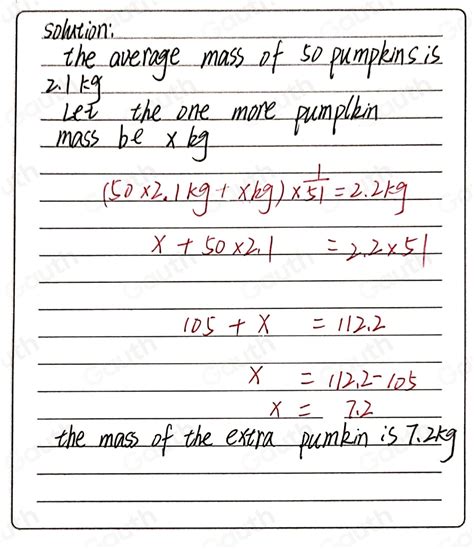 solution:
the average mass of 50 pumpkins is
2.1 kg
Let the one more pumplkin
mass be x kg
(50×2.1kg + xkg) × 1/51 = 2.2kg
x + 50×2.1 = 2.2×51
105 + x = 112.2
x = 112.2-105
x = 7.2
the mass of the extra pumkin is 7.2kg